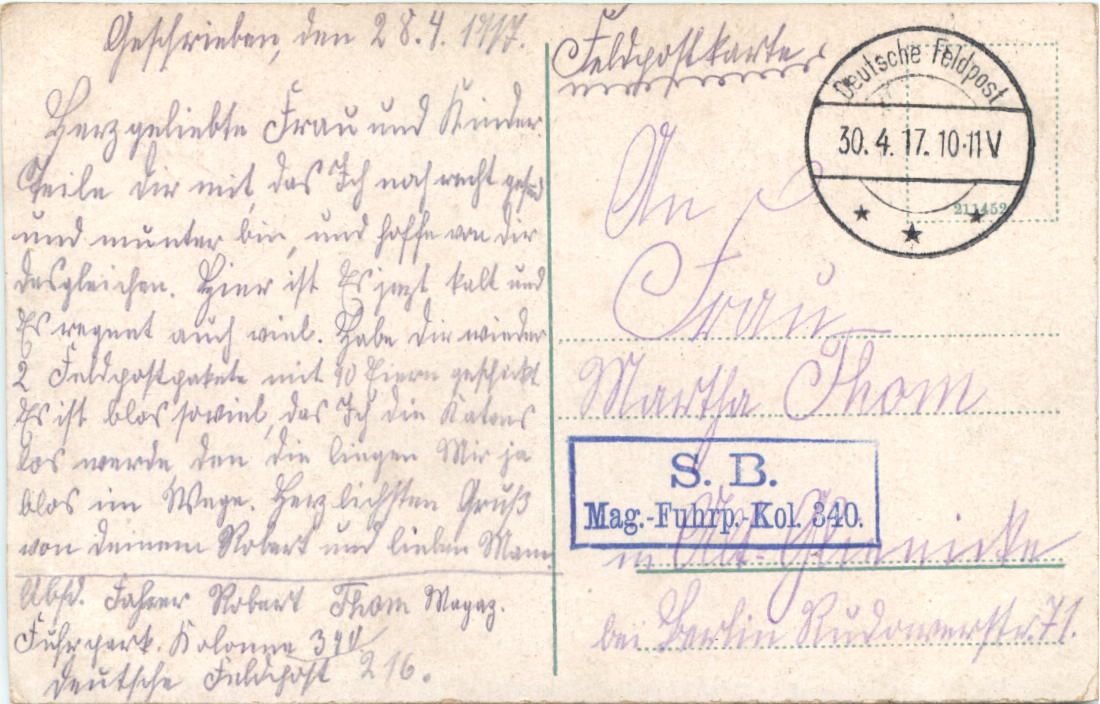 Geschrieben, den 28.4.1917.
Herzgeliebte Frau und Kinder
Teile dir mit, das Ich noch recht gesund
und munter bin, und hoffe von dir
desgleichen. Hier ist Es jezt kalt und
Es regnet auch viel. Habe dir wieder
2 Feldpostpakete mit 90 Eiern geschickt
Es ist blos soviel, das Ich die Katons
los werde den die liegen Mir ja
blos im Wege. Herzlichsten Gruß
von deinem Robert und lieben Mann
Absd. Fahrer Robert Thom Magaz.
Fuhrpark. Kolonne 340
Deutsche Feldpost 216.
Feldpostkarte
Deutsche Feldpost
30. 4. 17. 10-11 V
211452
An
Frau
Martha Thom
S. B.
Mag.-Fuhrp.-Kol. 340.
in Alt-Glienicke
bei Berlin Rudowerstr. 71.